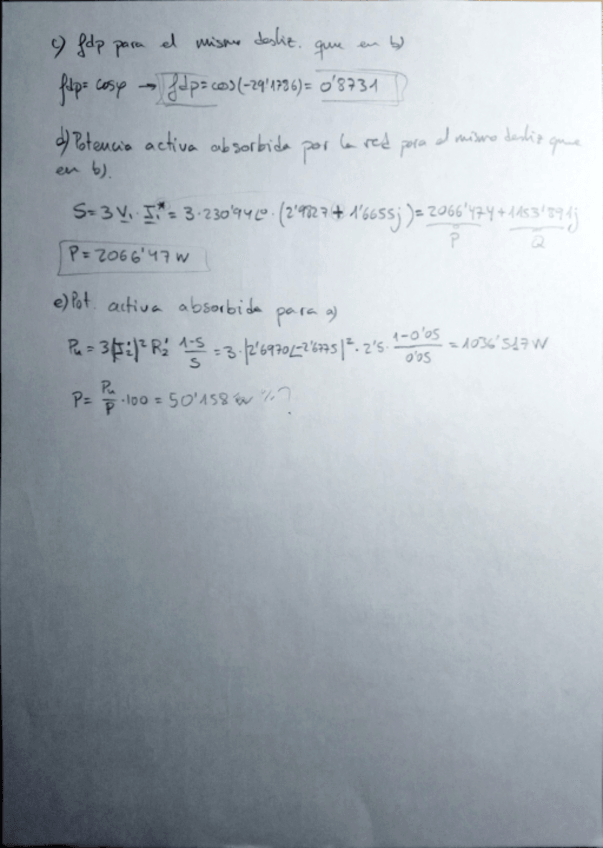 c) fdp para el mismo desliz. que en b)
fdp= cosφ → fdp=cos(-29'1786)= 0'8731
d) Potencia activa absorbida por la red para el mismo desliz que
en b).
S=3 V₁· I₁* = 3·230'94∠0·(2'9827+1'6655j)=2066'474+1153'891j
P Q
P=2066'47 W
e) Pot. activa absorbida para a)
Pu = 3|I₂'|² R₂' (1-S)/S = 3·|2'6970∠-2'6775|²·2'5·(1-0'05)/0'05 = 1036'517 W
P= Pu/P ·100 = 50'158 %?